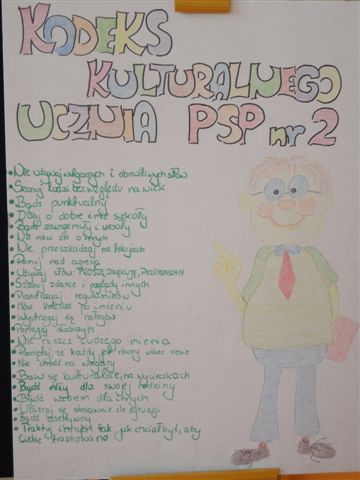 KODEKS
KULTURALNEGO
UCZNIA PSP nr 2
Nie używaj wulgarnych i obraźliwych słów
Szanuj ludzi bez względu na wiek
Bądź punktualny
Dbaj o dobre imię szkoły
Bądź zawsze miły i wesoły
Nie mów źle o innych
Nie przeszkadzaj na lekcjach
Panuj nad agresją
Używaj słów: PROSZĘ, DZIĘKUJĘ, PRZEPRASZAM
Szanuj zdanie i poglądy innych
Przestrzegaj regulaminów
Mów koledze po imieniu
Wystrzegaj się nałogów
Pomagaj słabszym
Nie niszcz cudzego mienia
Pamiętaj, że każdy jest równy wobec siebie
Nie chodź na wagary
Baw się kulturalnie, na wycieczkach
Bądź miły dla swojej rodziny
Bądź wzorem dla innych
Ubieraj się stosownie do sytuacji
Bądź asertywny
Traktuj innych tak jak chciałbyś, aby
Ciebie traktowano